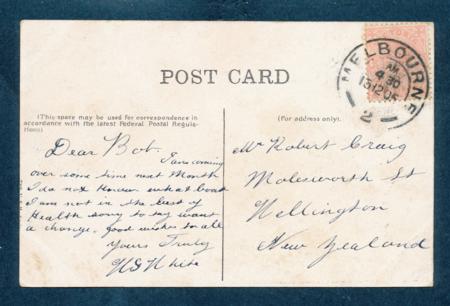 POST CARD
(This space may be used for correspondence in
accordance with the latest Federal Postal Regula-
tions)
(For address only).
MELBOURNE
AM
4 30
13 12 05
2
Dear Bob.
I am coming
over some time next Month
I do not know what boat
I am not in the best of
Health sorry to say want
a change. Good wishes to all
Yours Truly
White
Mr Robert Craig
Molesworth St
Wellington
New Zealand